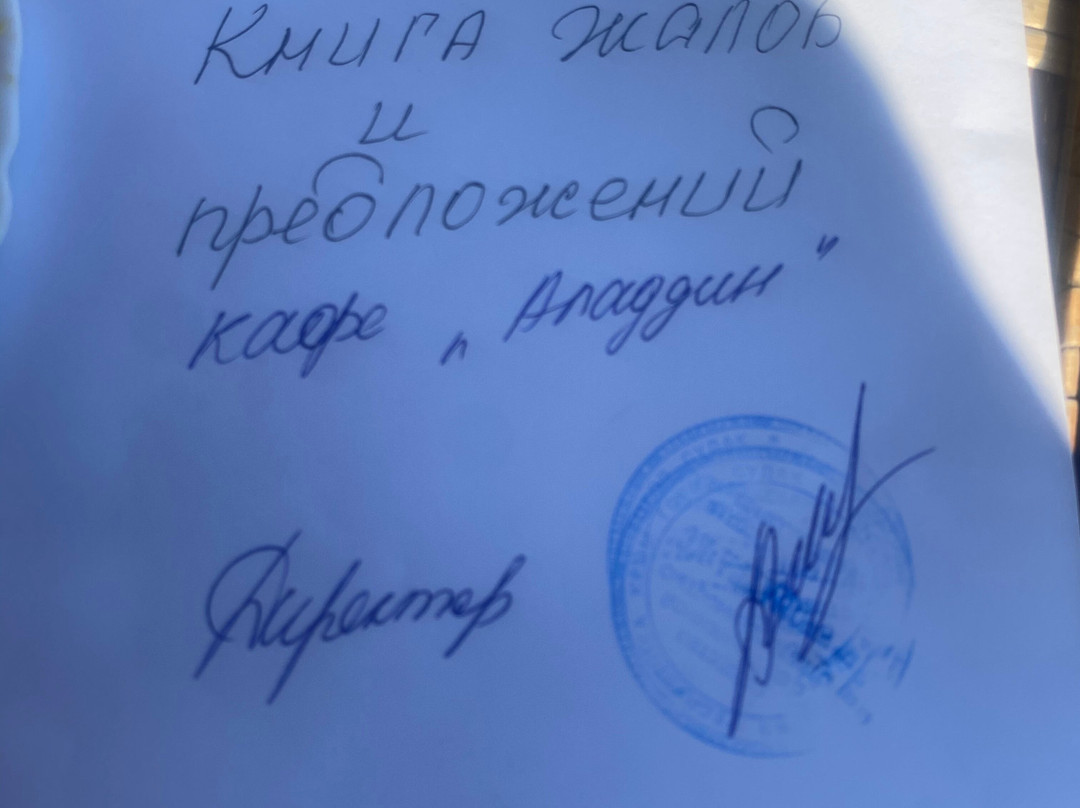 Книга жалоб
и
предложений
кафе „Аладдин"
Директор